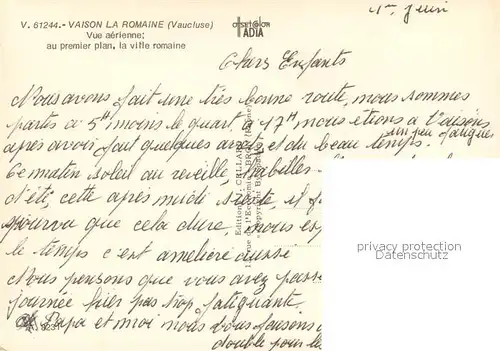 V. 61244.- VAISON LA ROMAINE (Vaucluse)
Vue aérienne;
au premier plan, la ville romaine
TADIA
1er Juin
Chers Enfants
Nous avons fait une très bonne route, nous sommes
partis à 5H moins le quart, à 17H nous étions à Vaison
un peu fatigués
après avoir fait quelques arrêts et du beau temps.
Ce matin soleil au réveil, habillés
d'été, cette après midi
pourvu que cela dure, nous esp
le temps c'est amélioré aussi
Nous pensons que vous avez passé
journée hier pas trop fatiguante.
Papa et moi nous vous faisons
double pour le
Editions J. CELLARD
rue de l'Economie, BRON (Rhône)
"Copyright by
privacy protection
AKpool.de